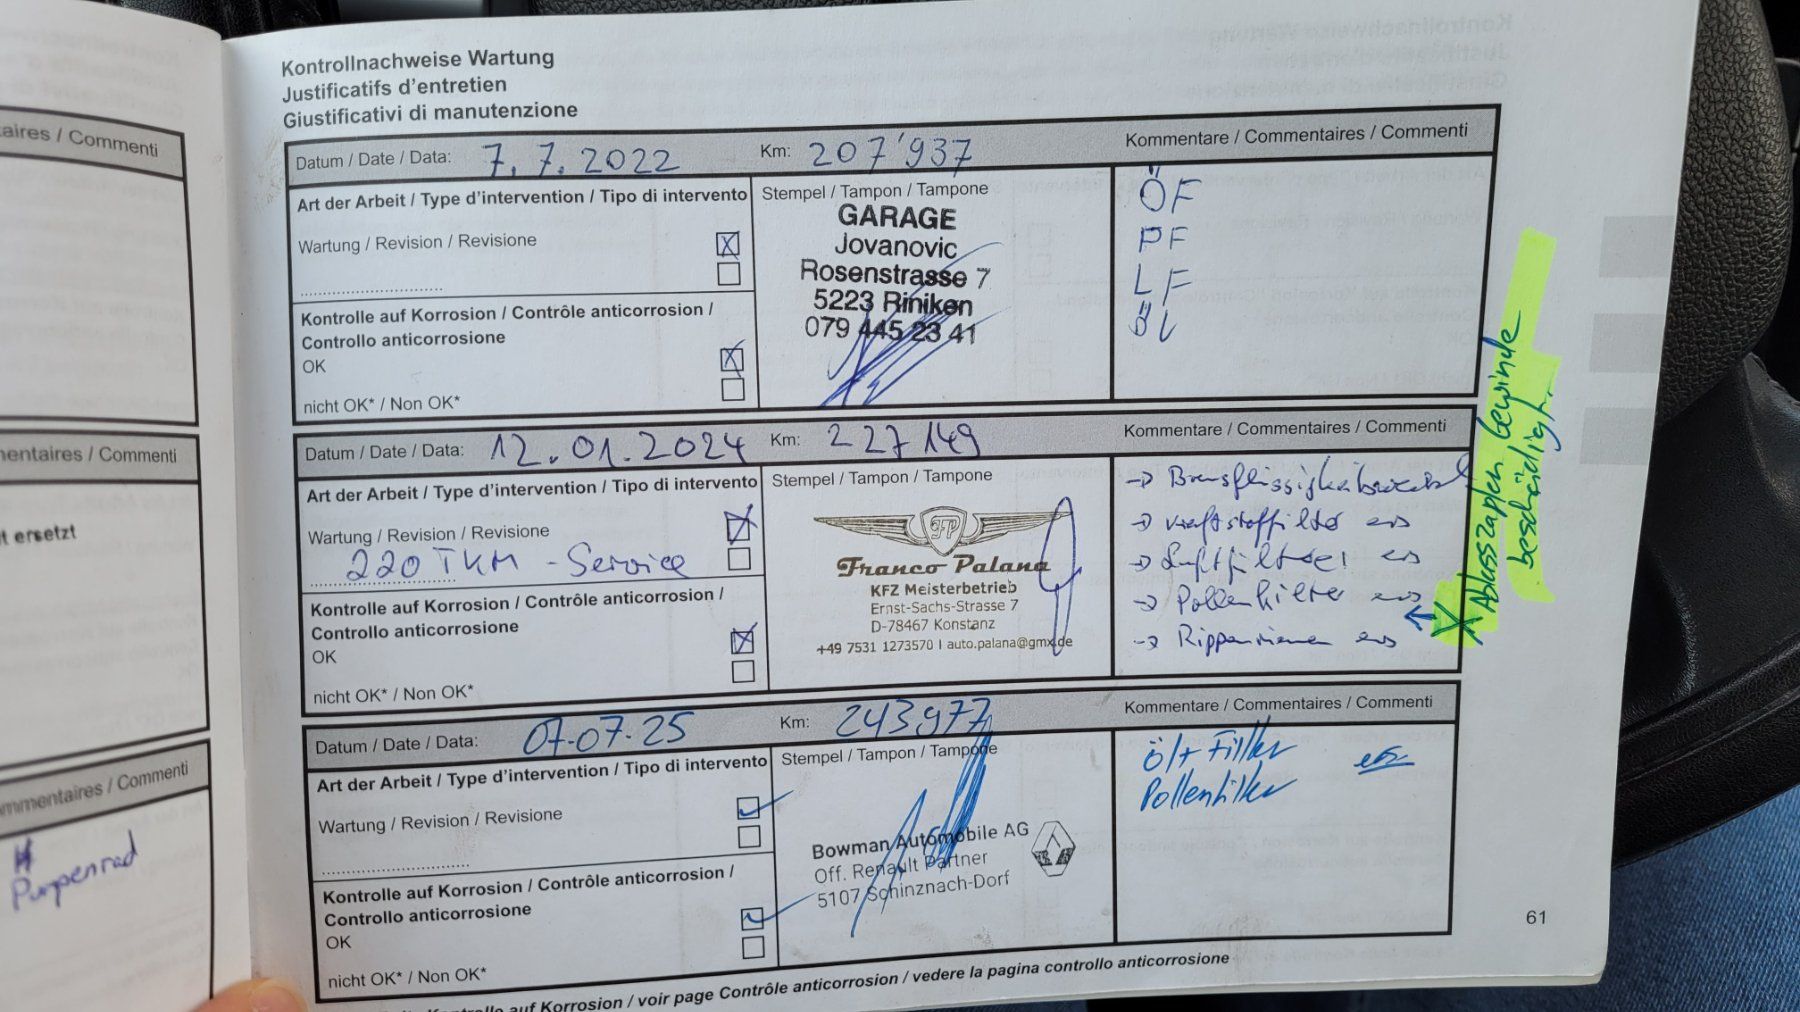 aires / Commenti
entaires / Commenti
t ersetzt
mmentaires / Commenti
Pumpenrad
Kontrollnachweise Wartung
Justificatifs d'entretien
Giustificativi di manutenzione
Datum / Date / Data: 7.7.2022 Km: 207'937 Kommentare / Commentaires / Commenti
Art der Arbeit / Type d'intervention / Tipo di intervento
Wartung / Revision / Revisione
Kontrolle auf Korrosion / Contrôle anticorrosion /
Controllo anticorrosione
OK
nicht OK* / Non OK*
Stempel / Tampon / Tampone
GARAGE
Jovanovic
Rosenstrasse 7
5223 Riniken
079 445 23 41
ÖF
PF
LF
ÖL
Datum / Date / Data: 12.01.2024 Km: 227149 Kommentare / Commentaires / Commenti
Art der Arbeit / Type d'intervention / Tipo di intervento
Wartung / Revision / Revisione
220 TKM - Service
Kontrolle auf Korrosion / Contrôle anticorrosion /
Controllo anticorrosione
OK
nicht OK* / Non OK*
Stempel / Tampon / Tampone
FP
Franco Palana
KFZ Meisterbetrieb
Ernst-Sachs-Strasse 7
D-78467 Konstanz
+49 7531 1273570 | auto.palana@gmx.de
→ Kraftstofffilter ers
→ Luftfilter ers
→ Pollenfilter ers
→ Rippenriemen ers
X Ablasszapfen Gewinde
beschädigt.
Datum / Date / Data: 07.07.25 Km: 243977 Kommentare / Commentaires / Commenti
Art der Arbeit / Type d'intervention / Tipo di intervento
Wartung / Revision / Revisione
Kontrolle auf Korrosion / Contrôle anticorrosion /
Controllo anticorrosione
OK
nicht OK* / Non OK*
Stempel / Tampon / Tampone
Bowman Automobile AG
Off. Renault Partner
5107 Schinznach-Dorf
Öl + Filter ers
Pollenfilter
61
auf Korrosion / voir page Contrôle anticorrosion / vedere la pagina controllo anticorrosione